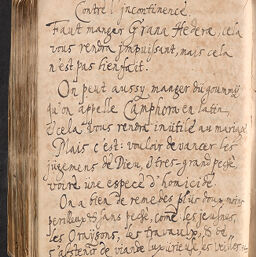 Contre l'incontinence.
Faut manger Grana Hedera, cela
vous rendra impuissant, mais cela
n'est pas bien fait.
On peut aussy manger du goumme
qu'on appelle Camphora en latin
cela vous rendra inutile au mariage
Mais c'est: vouloir devancer les
jugemens de Dieu, & tres-grand peché
voire une espece d'homicide.
On a bien de remedes plus doux moins
perilleux & sans peché, come les jeusnes,
les Oraysons, les travaulx, & de
s'abstenir de viande luxurieuse, les veilles